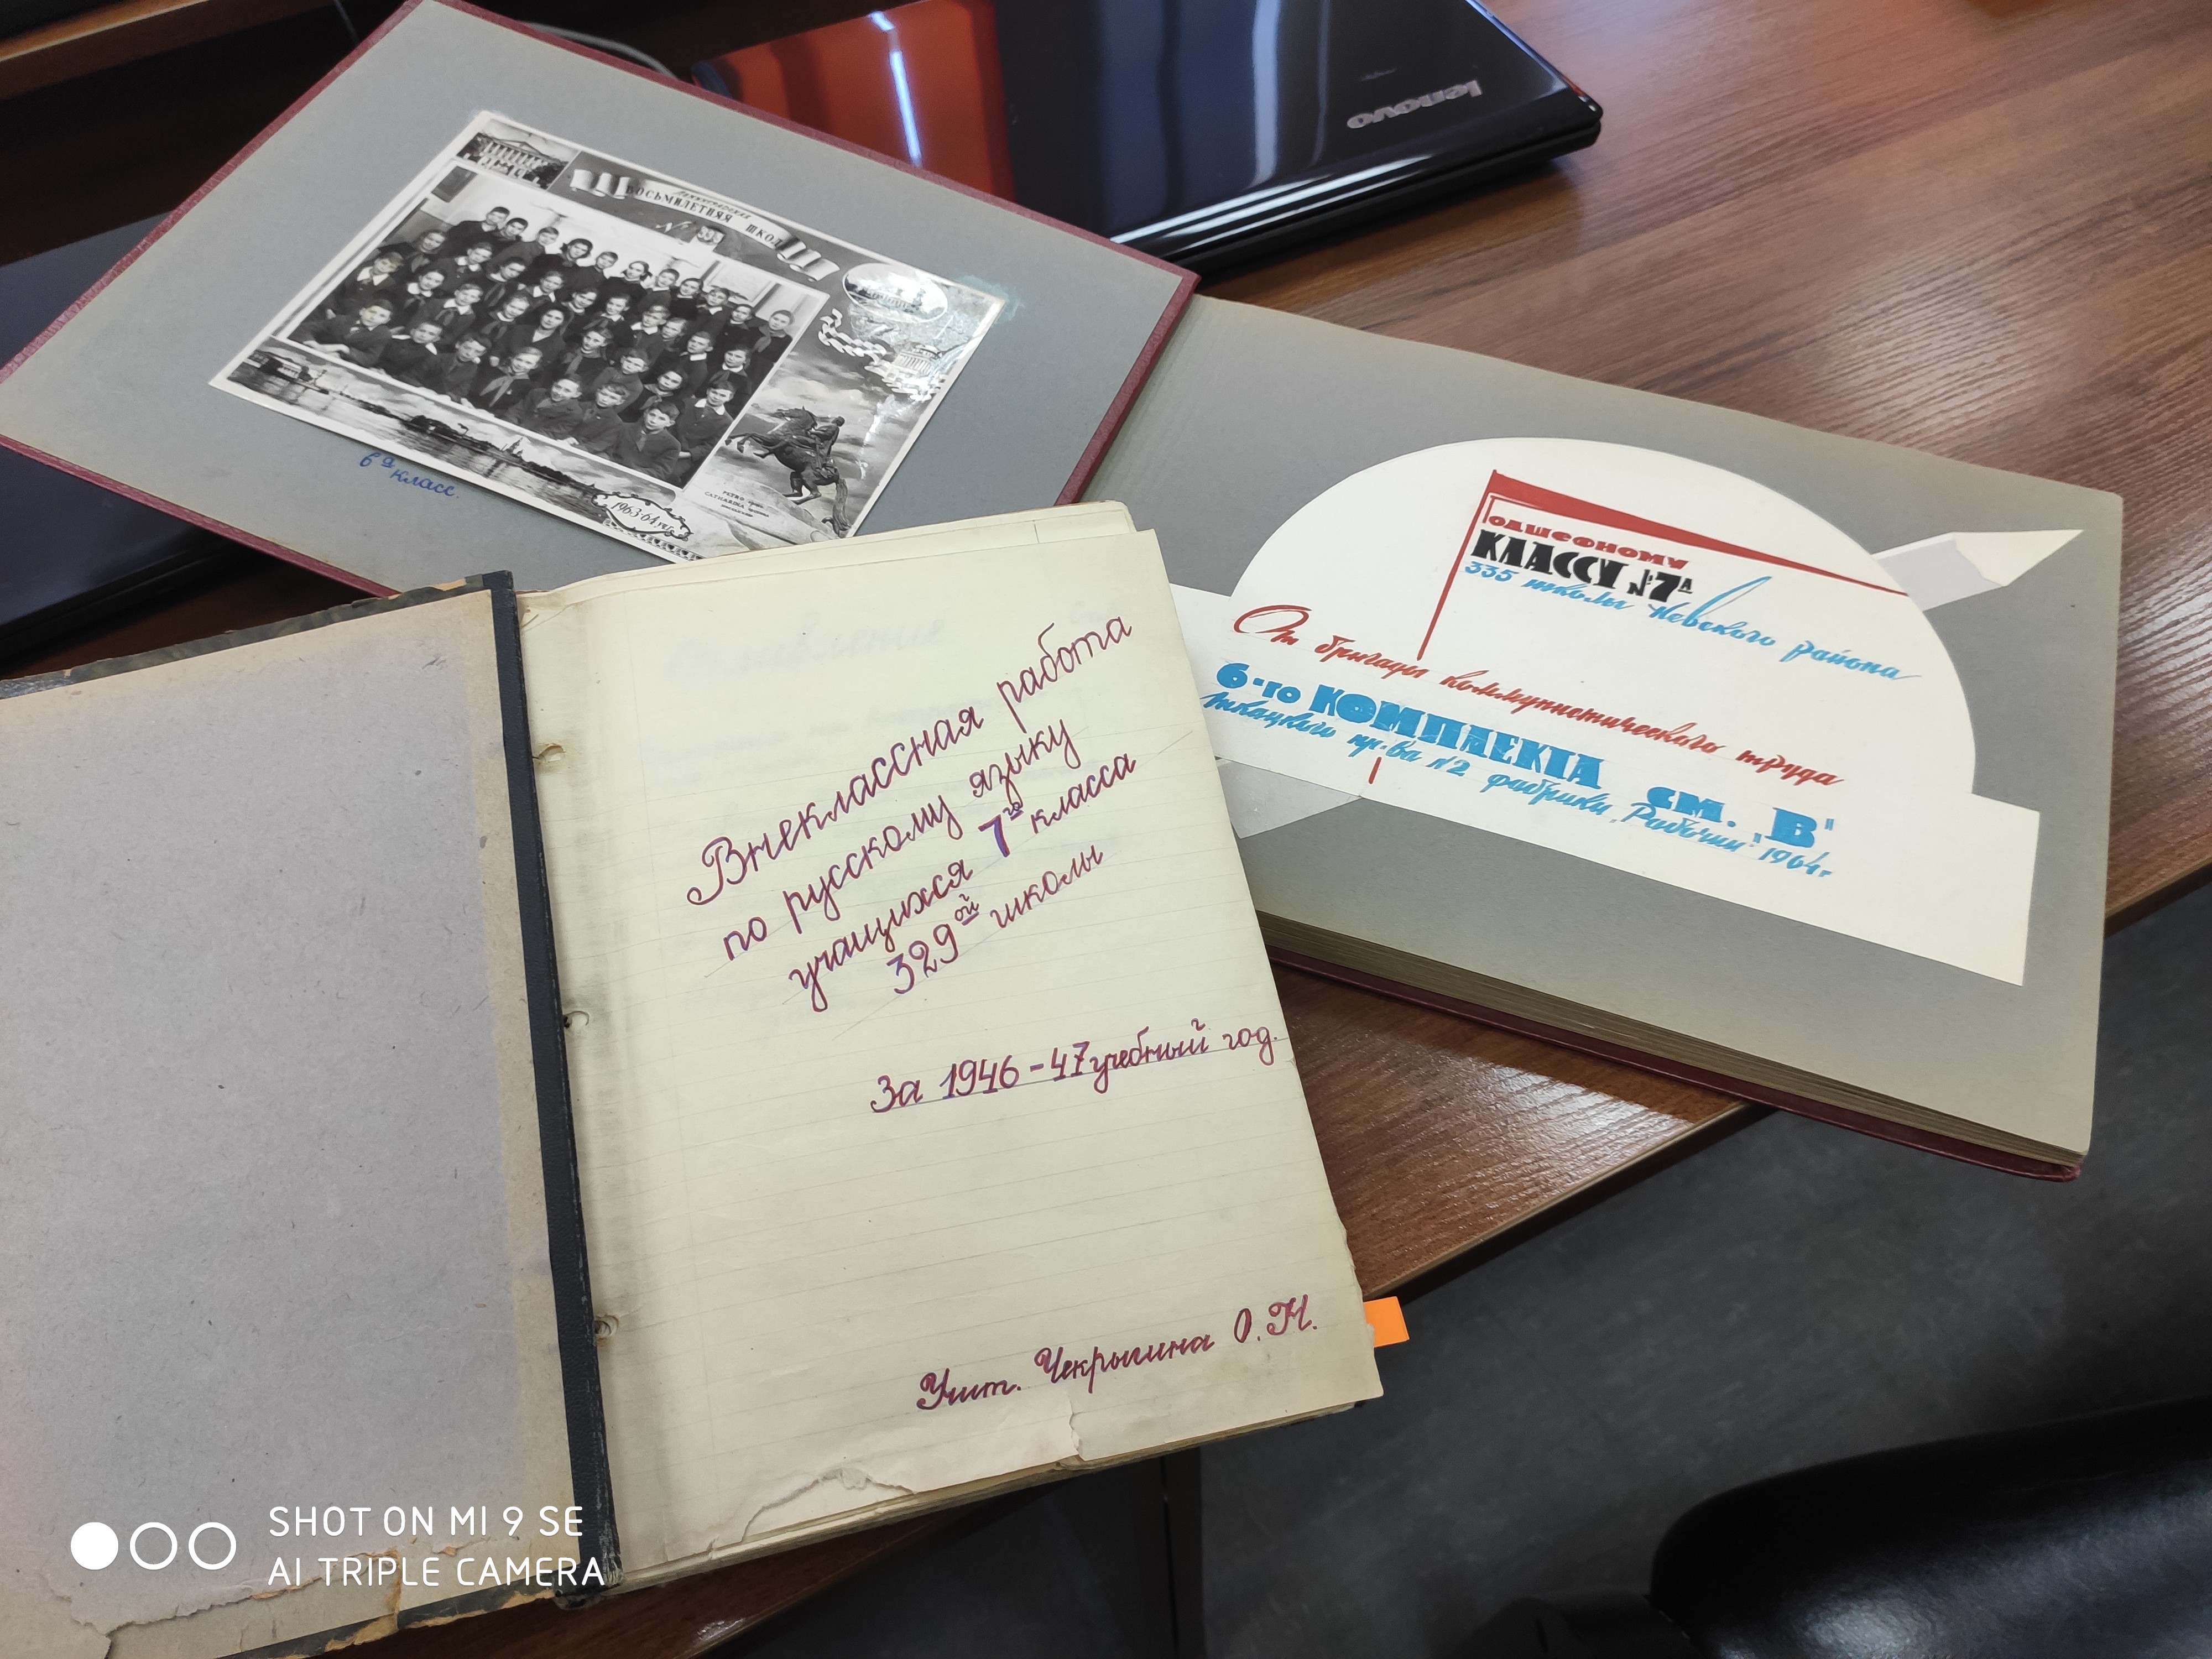 lenovo
ЛЕНИНГРАДСКАЯ
ВОСЬМИЛЕТНЯЯ ШКОЛА
№ 335
PETRO primo
CATHARINA secunda
1963-64 уч.г.
6ой класс.
ПОДШЕФНОМУ
КЛАССУ №7А
335 школы Невского района
От бригады коммунистического труда
6-го КОМПЛЕКТА см. „В"
ткацкого пр-ва №2 фабрики „Рабочий" 1964г
Внеклассная работа
по русскому языку
учащихся 7го класса
329ой школы
За 1946-47 учебный год.
Учит. Чекрыгина О.Н.
SHOT ON MI 9 SE
AI TRIPLE CAMERA